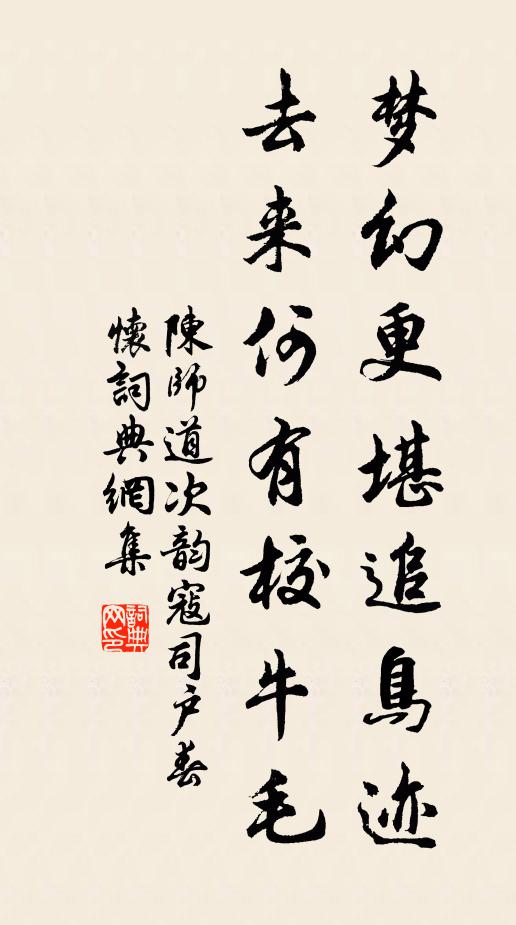 梦幻更堪追鳥迹
去来何有校牛毛
陳師道次韵寇司户春
懷詞典網集
詞典网印